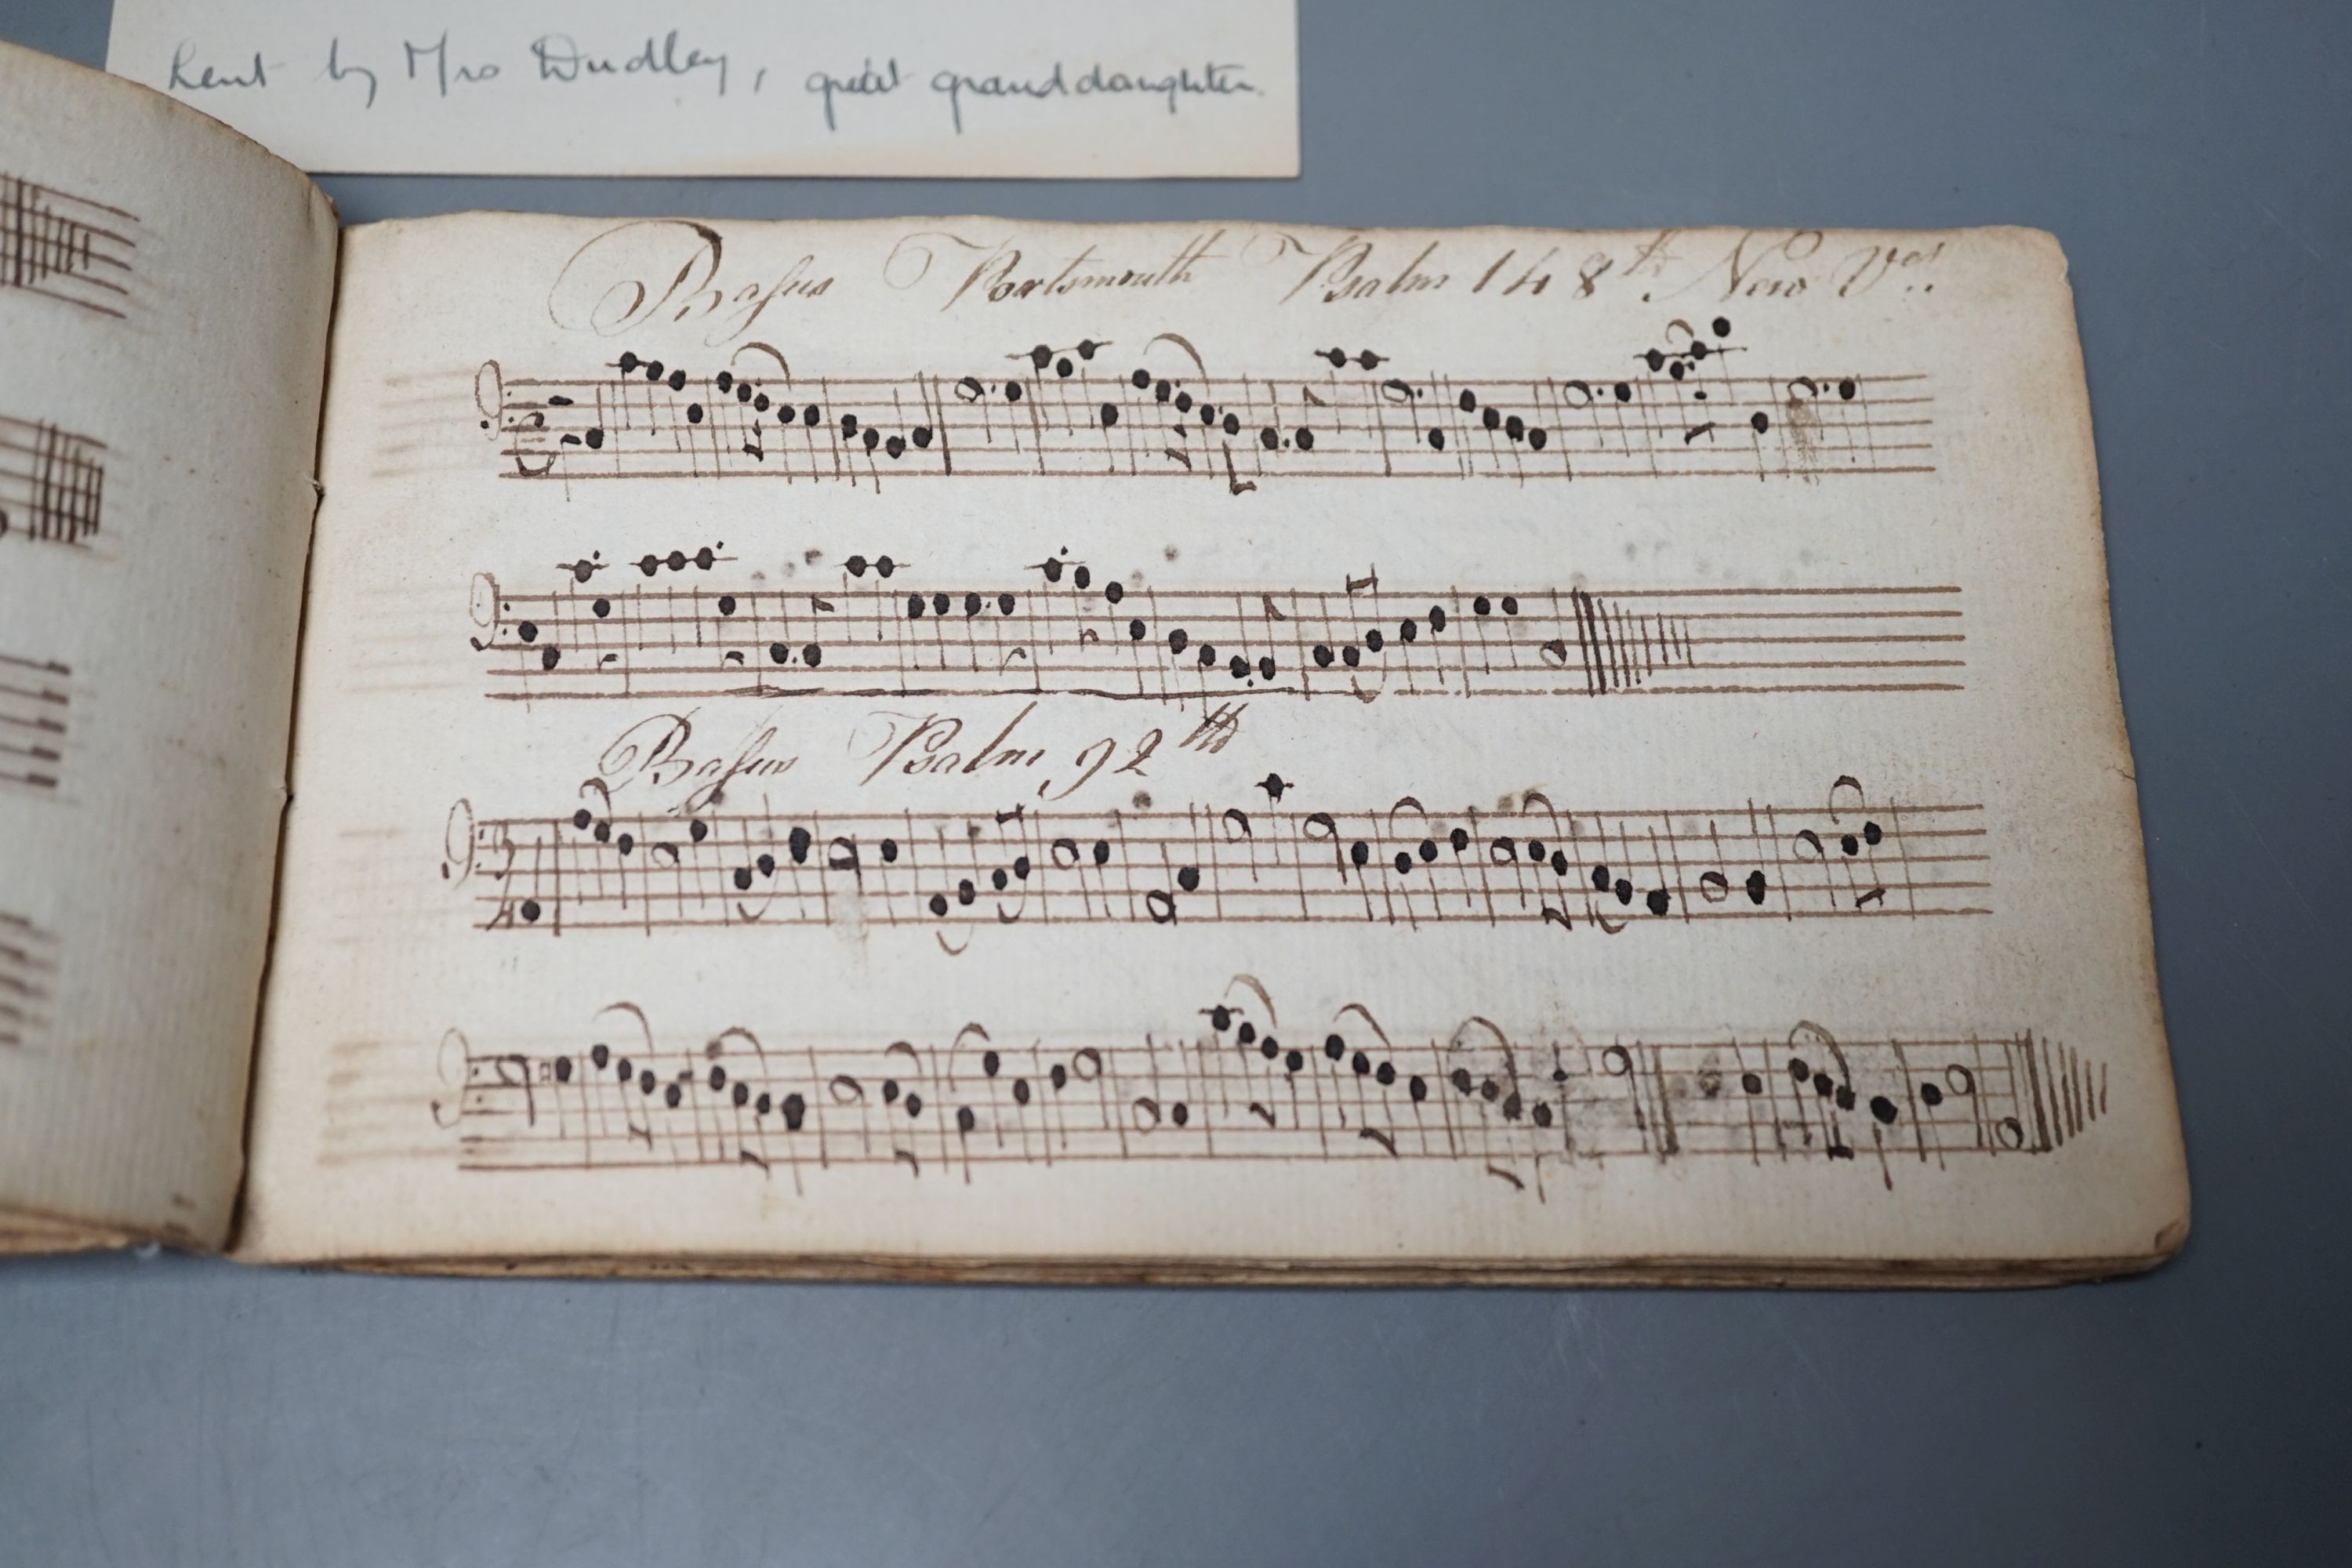 Lent by Mrs Dudley, great granddaughter.
Bassus Portsmouth Psalm 148th New Ver.
Bassus Psalm 92th
3
4